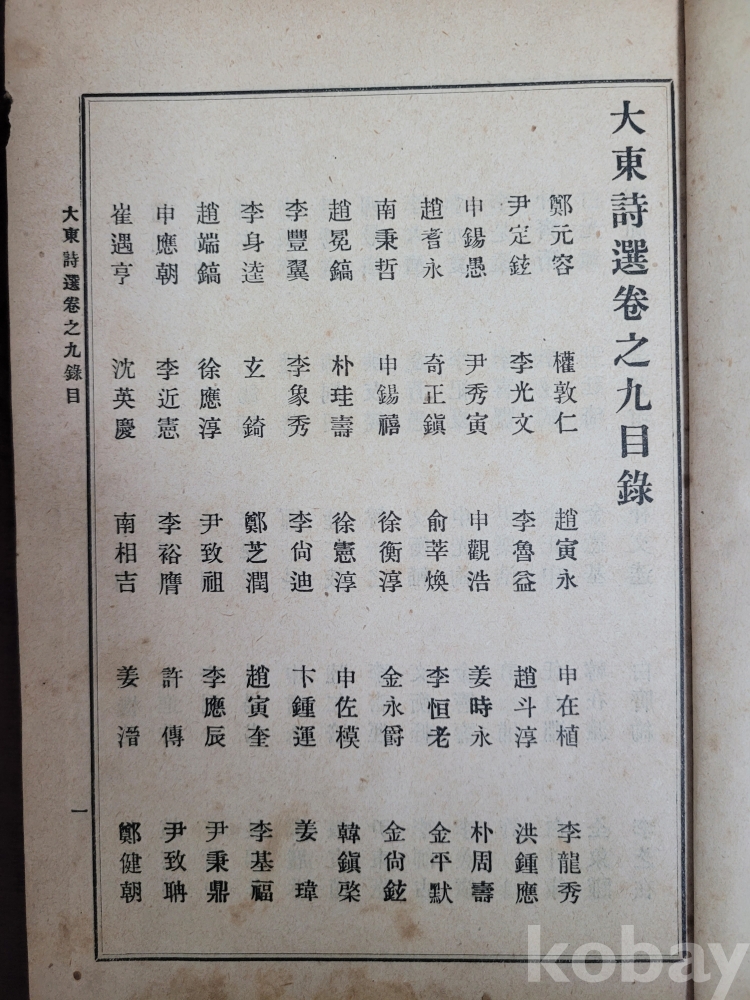 大東詩選卷之九目錄
鄭元容 權敦仁 趙寅永 申在植 李龍秀
尹定鉉 李光文 李魯益 趙斗淳 洪鍾應
申錫愚 尹秀寅 申觀浩 姜時永 朴周壽
趙耆永 奇正鎭 俞莘煥 李恒老 金平默
南秉哲 申錫禧 徐衡淳 金永爵 金尙鉉
趙冕鎬 朴珪壽 徐憲淳 申佐模 韓鎭棨
李豐翼 李象秀 李尙迪 卞鍾運 姜瑋
李身逵 玄錡 鄭芝潤 趙寅奎 李基福
趙端鎬 徐應淳 尹致祖 李應辰 尹秉鼎
申應朝 李近憲 李裕膺 許傳 尹致聃
崔遇亨 沈英慶 南相吉 姜溍 鄭健朝
大東詩選卷之九錄目
一
kobay